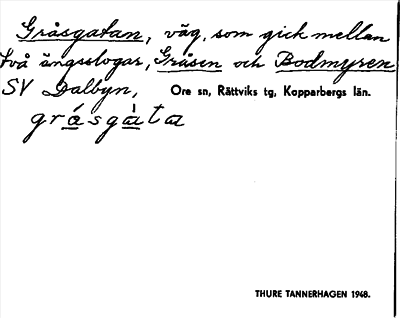 Gråsgatan, väg, som gick mellan
två ängsslogar, Gråsen och Bodmyren
SV Dalbyn, Ore sn, Rättviks tg, Kopparbergs län.
gråsgàta
THURE TANNERHAGEN 1948.